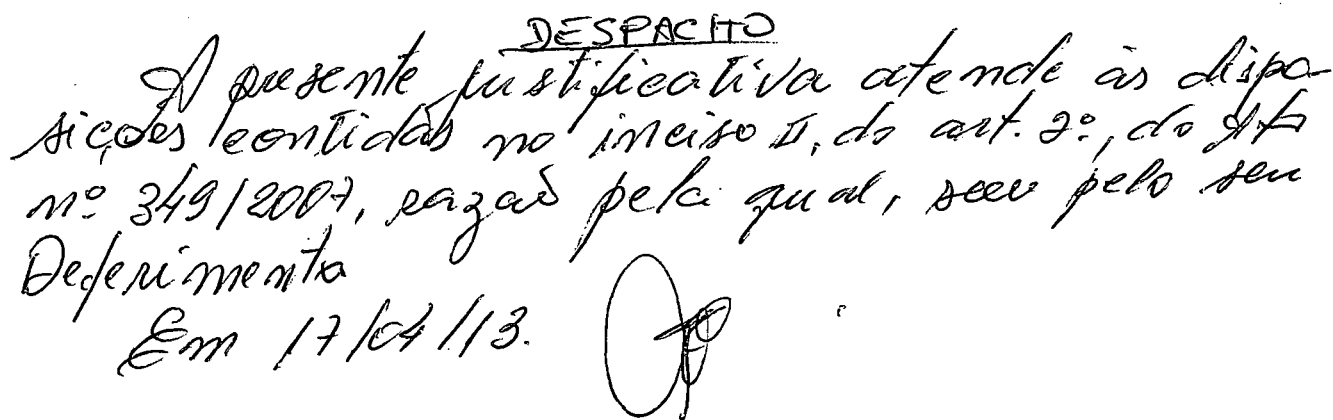 DESPACHO
A presente justificativa atende às dispo-
sições contidas no inciso II, do art. 2º, do Ato
nº 349/2007, razão pela qual, sou pelo seu
Deferimento
Em 17/04/13.